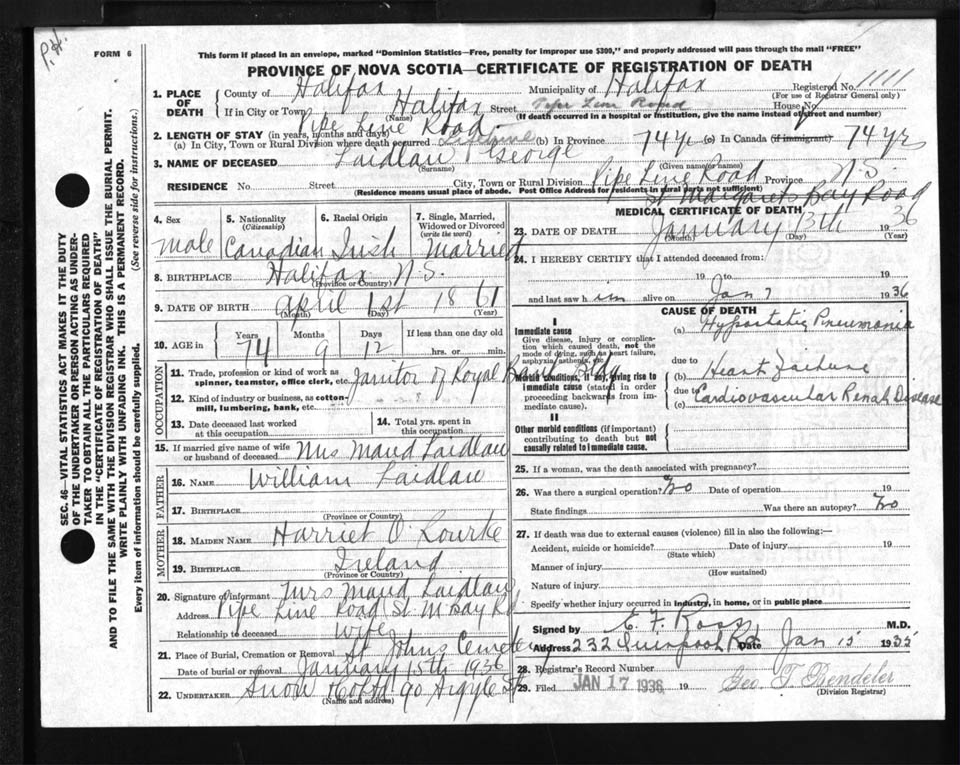 P.H.
FORM 6
This form if placed in an envelope, marked "Dominion Statistics—Free, penalty for improper use $300," and properly addressed will pass through the mail "FREE"
PROVINCE OF NOVA SCOTIA—CERTIFICATE OF REGISTRATION OF DEATH
SEC. 46—VITAL STATISTICS ACT MAKES IT THE DUTY
OF THE UNDERTAKER OR PERSON ACTING AS UNDER-
TAKER TO OBTAIN ALL THE PARTICULARS REQUIRED
IN THE "CERTIFICATE OF REGISTRATION OF DEATH"
AND TO FILE THE SAME WITH THE DIVISION REGISTRAR WHO SHALL ISSUE THE BURIAL PERMIT.
WRITE PLAINLY WITH UNFADING INK. THIS IS A PERMANENT RECORD.
Every item of information should be carefully supplied. (See reverse side for instructions.)
1. PLACE OF DEATH
County of Halifax Municipality of Halifax Registered No. 1111
(For use of Registrar General only)
If in City or Town Halifax Street Pipe Line Road House No.
(Name) (If death occurred in a hospital or institution, give the name instead of street and number)
Pipe Line Road
2. LENGTH OF STAY (in years, months and days)
(a) In City, Town or Rural Division where death occurred Lifetime (b) In Province 74 yr (c) In Canada (if immigrant) 74 yrs
3. NAME OF DECEASED Laidlaw George
(Surname) (Given name or names)
RESIDENCE No. Street City, Town or Rural Division Pipe Line Road Province N.S
(Residence means usual place of abode. Post Office Address for residents in rural parts not sufficient)
St Margarets Bay Road
4. Sex Male
5. Nationality (Citizenship) Canadian
6. Racial Origin Irish
7. Single, Married, Widowed or Divorced (write the word) Married
8. BIRTHPLACE Halifax N.S.
(Province or Country)
9. DATE OF BIRTH April 1st 1861
(Month) (Day) (Year)
10. AGE in Years 74 Months 9 Days 12 If less than one day old hrs. or min.
OCCUPATION
11. Trade, profession or kind of work as spinner, teamster, office clerk, etc. Janitor of Royal Bank Bldg
12. Kind of industry or business, as cotton-mill, lumbering, bank, etc.
13. Date deceased last worked at this occupation
14. Total yrs. spent in this occupation
15. If married give name of wife or husband of deceased Mrs Maud Laidlaw
FATHER
16. NAME William Laidlaw
17. BIRTHPLACE
(Province or Country)
MOTHER
18. MAIDEN NAME Harriet O'Rourke
19. BIRTHPLACE Ireland
(Province or Country)
20. Signature of informant Mrs Maud Laidlaw
Address Pipe Line Road St M Bay Rd
Relationship to deceased Wife
21. Place of Burial, Cremation or Removal St Johns Cemetery
Date of burial or removal January 15th 1936
22. UNDERTAKER Snow & Co Ltd 90 Argyle St
(Name and address)
MEDICAL CERTIFICATE OF DEATH
23. DATE OF DEATH January 13th 1936
(Month) (Day) (Year)
24. I HEREBY CERTIFY that I attended deceased from:
19 to 19
and last saw h im alive on Jan 7 1936
CAUSE OF DEATH
I
Immediate cause
Give disease, injury or complication which caused death, not the mode of dying, such as heart failure, asphyxia, asthenia, etc.
(a) Hypostatic Pneumonia
due to
Morbid conditions, if any, giving rise to immediate cause (stated in order proceeding backwards from immediate cause).
(b) Heart Failure
due to
(c) Cardiovascular Renal Disease
II
Other morbid conditions (if important) contributing to death but not causally related to immediate cause.
25. If a woman, was the death associated with pregnancy?
26. Was there a surgical operation? No Date of operation 19
State findings Was there an autopsy? No
27. If death was due to external causes (violence) fill in also the following:—
Accident, suicide or homicide? Date of injury 19
(State which)
Manner of injury
(How sustained)
Nature of injury
Specify whether injury occurred in industry, in home, or in public place
Signed by E. F. Ross M.D.
Address 232 Quinpool Rd. Date Jan 15 1935
28. Registrar's Record Number
29. Filed JAN 17 1936 19 Geo. T.
(Division Registrar)